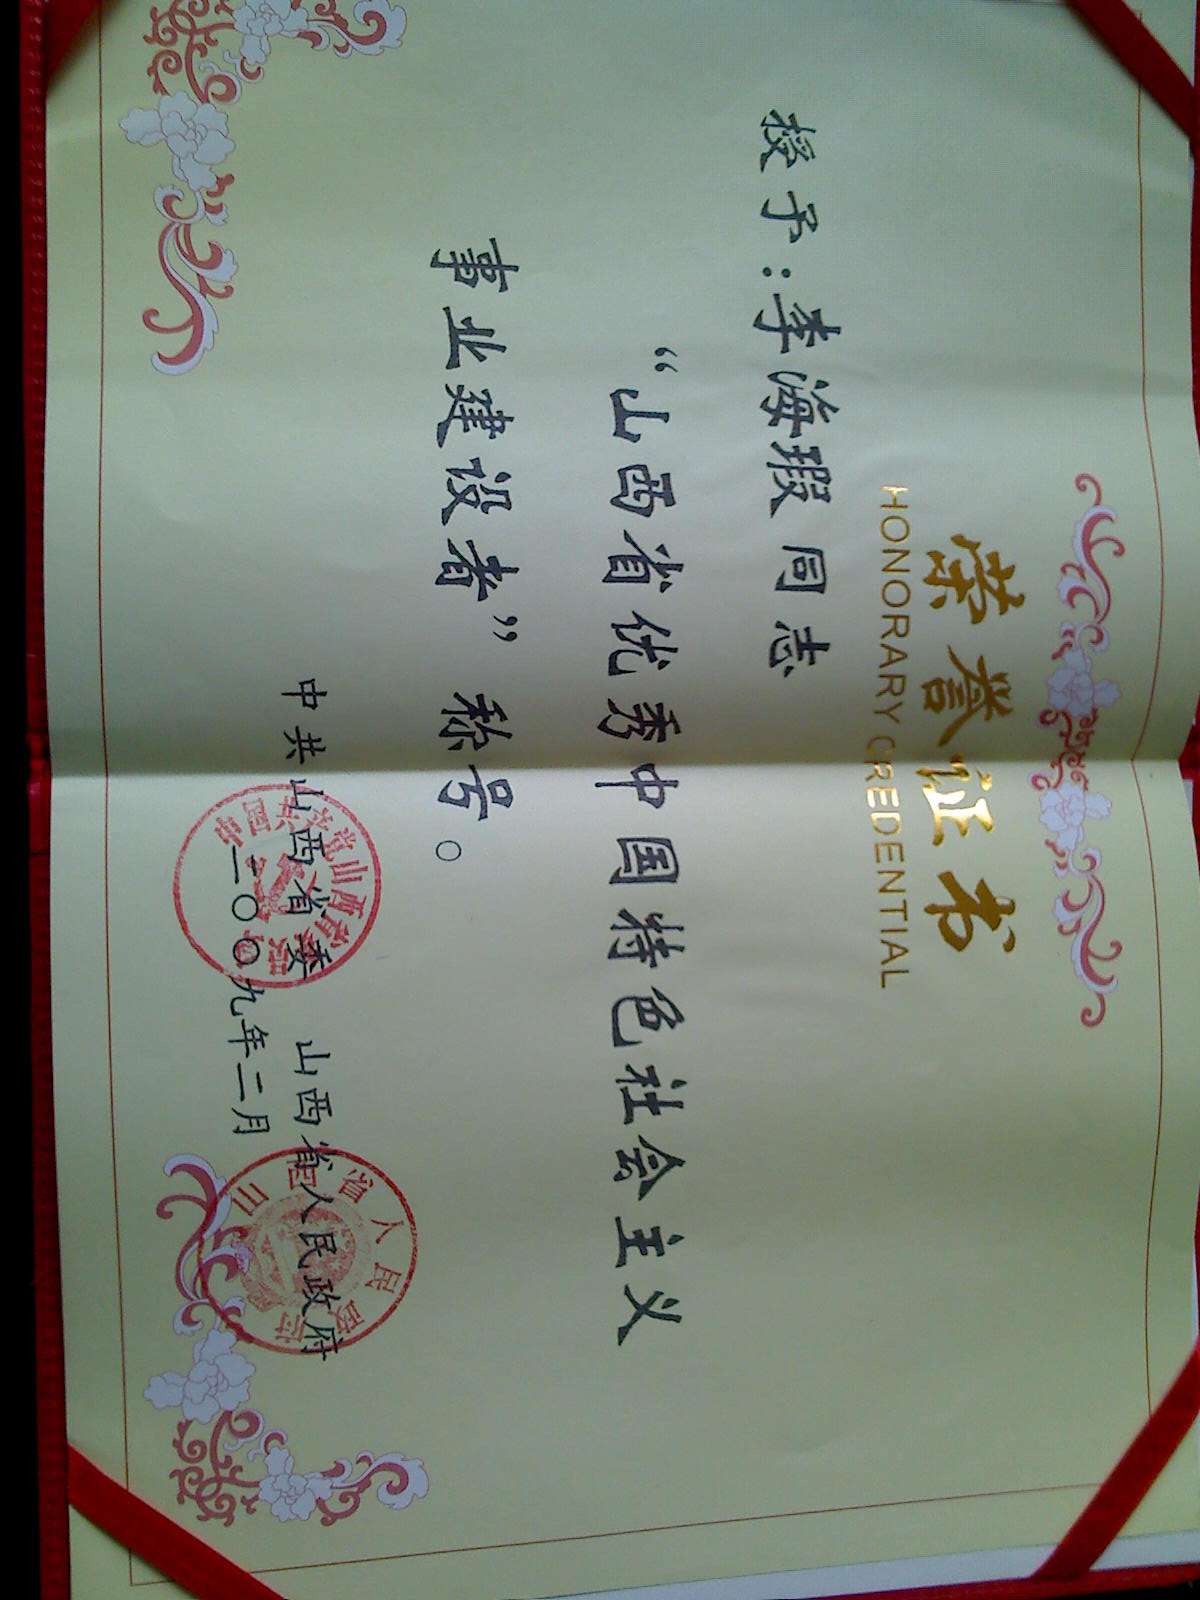 荣誉证书
HONORARY CREDENTIAL
授予:李海瑕 同志
“山西省优秀中国特色社会主义
事业建设者” 称号。
中共山西省委 山西省人民政府
二〇〇九年二月
山西省人民政府